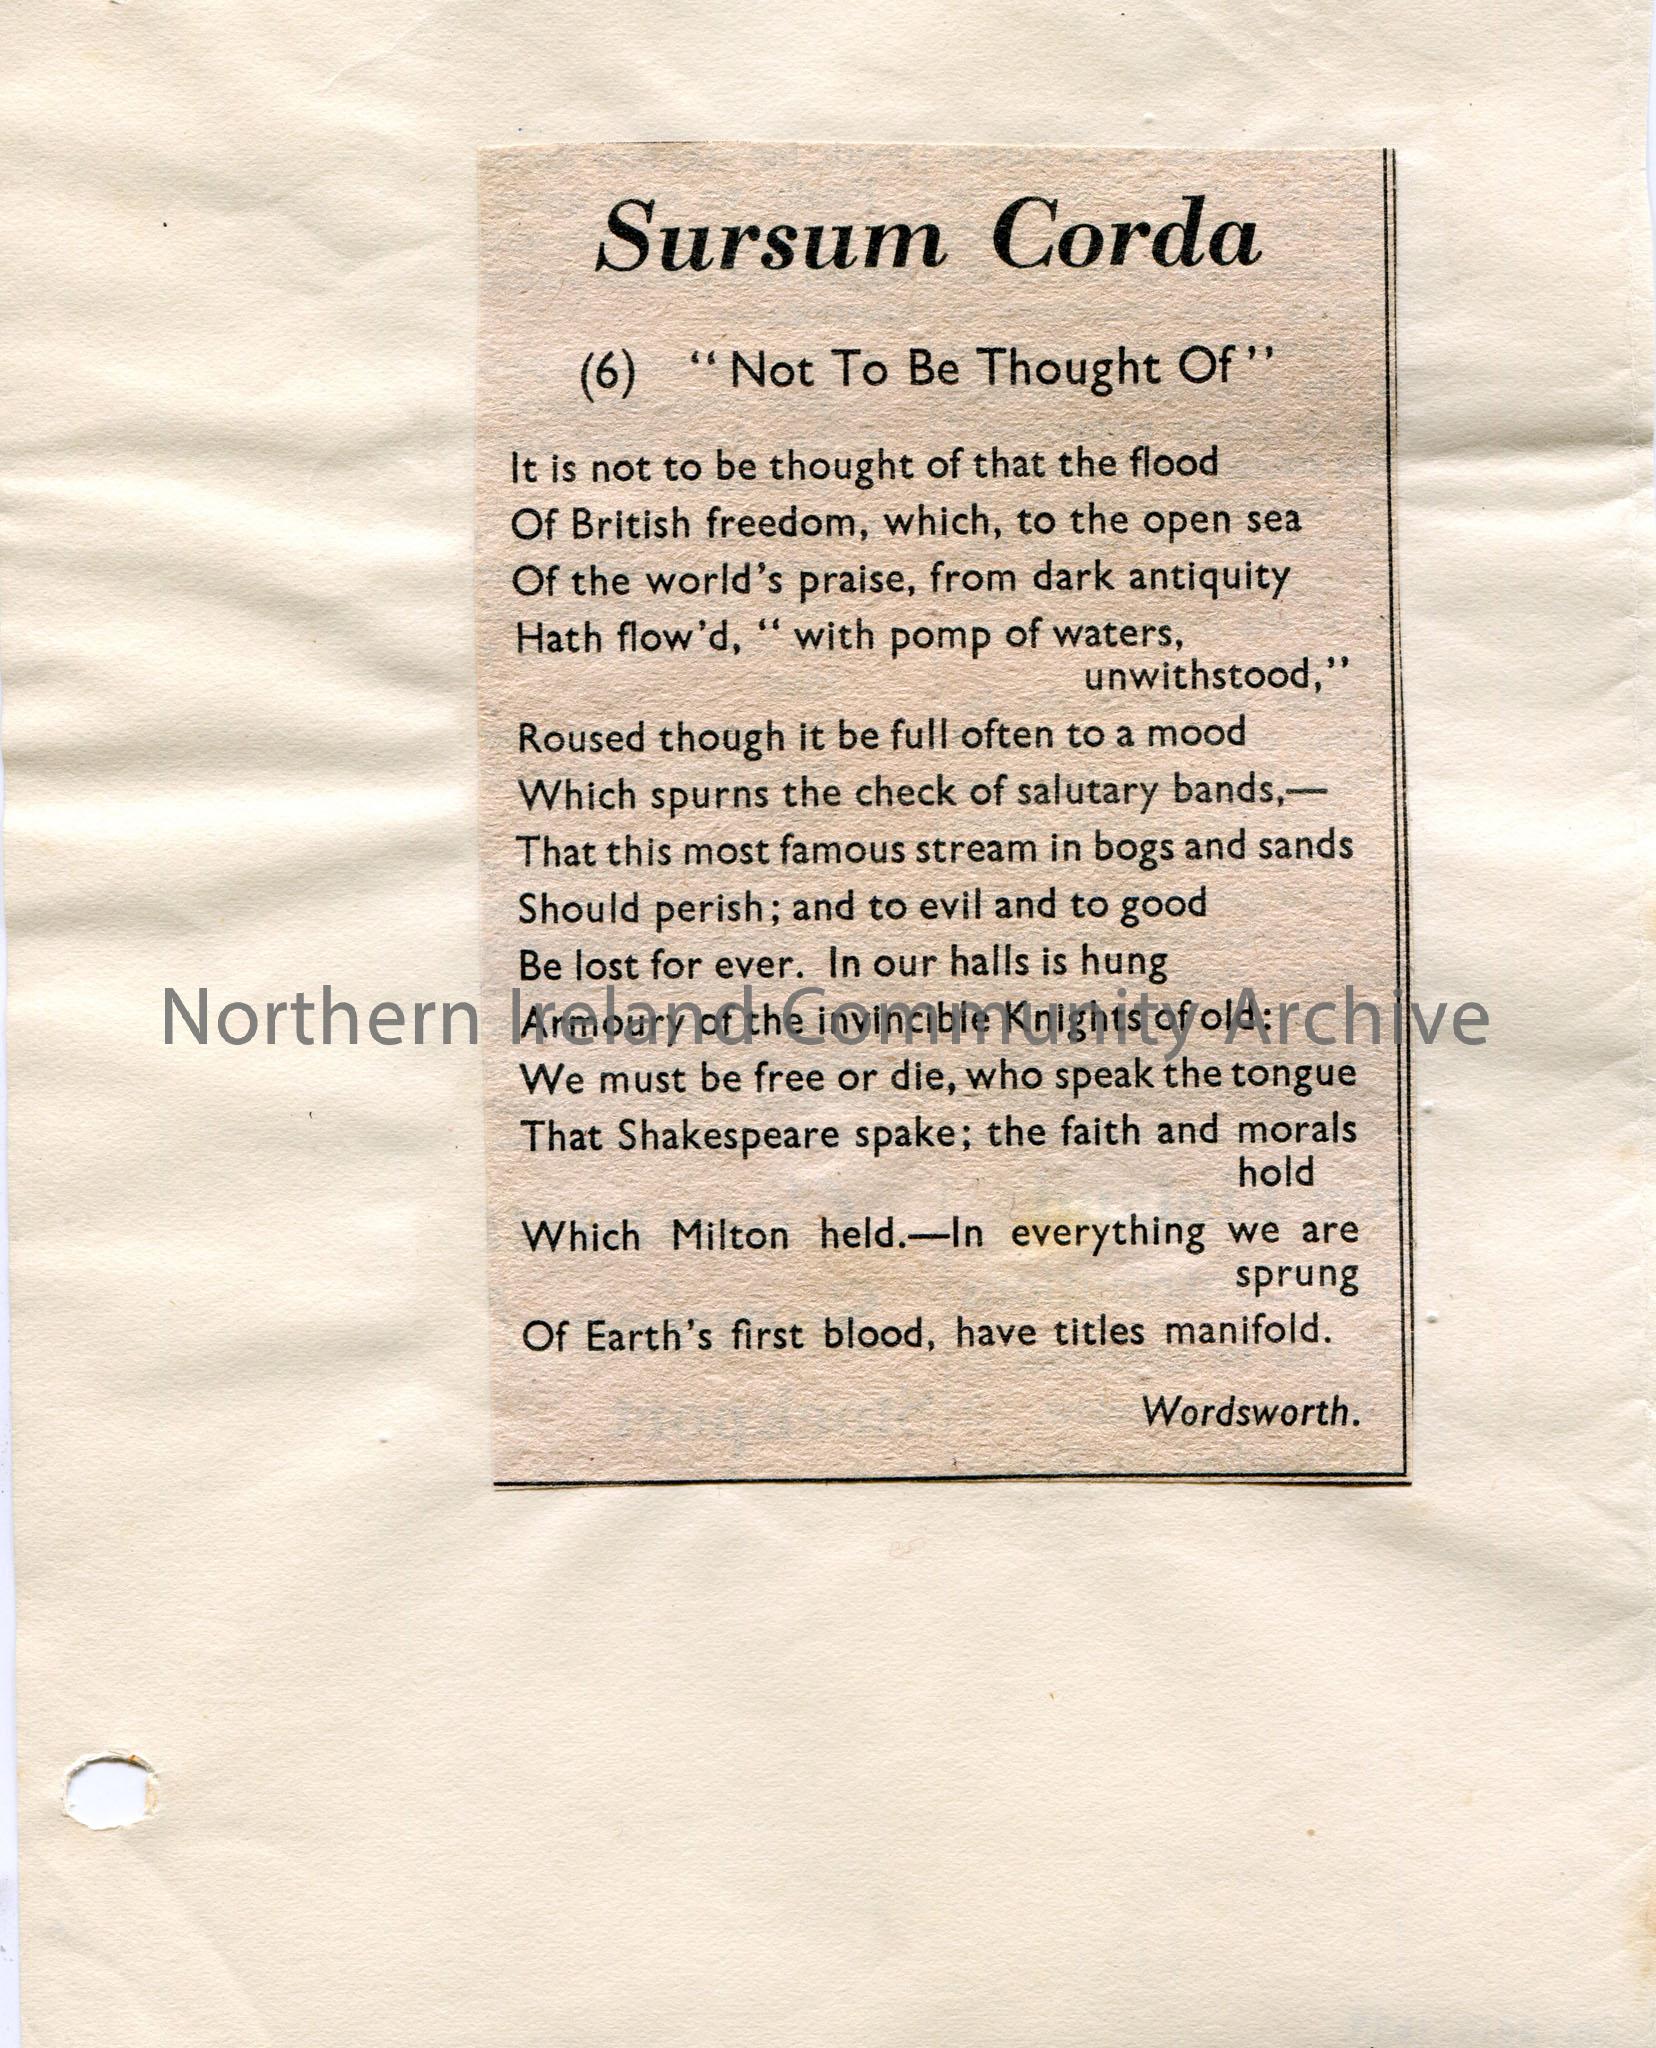 Sursum Corda
(6) “Not To Be Thought Of”
It is not to be thought of that the flood
Of British freedom, which, to the open sea
Of the world’s praise, from dark antiquity
Hath flow’d, “ with pomp of waters,
unwithstood,”
Roused though it be full often to a mood
Which spurns the check of salutary bands,—
That this most famous stream in bogs and sands
Should perish; and to evil and to good
Be lost for ever. In our halls is hung
Armoury of the invincible Knights of old:
Northern Ireland Community Archive
We must be free or die, who speak the tongue
That Shakespeare spake; the faith and morals
hold
Which Milton held.—In everything we are
sprung
Of Earth’s first blood, have titles manifold.
Wordsworth.